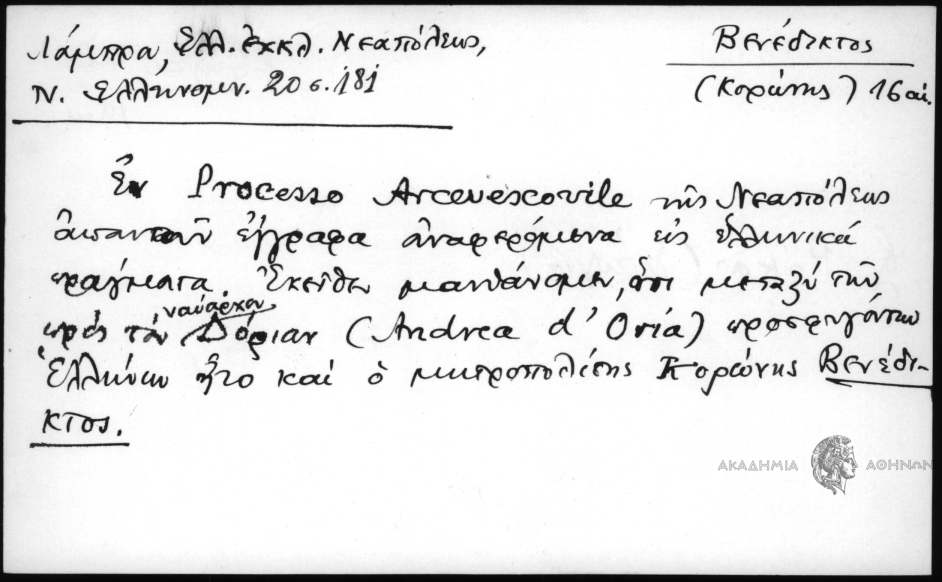 Λάμπρα, Ἑλλ. ἐκκλ. Νεαπόλεως,
Ν. Ἑλληνομν. 20 σ. 181
Βενέδικτος
(Κορώνης) 16 αἰ.
Ἐν Processo Arcevescovile τῆς Νεαπόλεως
ἀπαντοῦν ἔγγραφα ἀναφερόμενα εἰς ἑλληνικά
πράγματα. Ἐκεῖθεν μανθάνομεν, ὅτι μεταξύ τῶν
πρός τόν ναύαρχον Δόριαν (Andrea d' Oria) προσφυγόντων
Ἑλλήνων ἦτο καί ὁ μητροπολίτης Κορώνης Βενέδι-
κτος.
ΑΚΑΔΗΜΙΑ ΑΘΗΝΩΝ